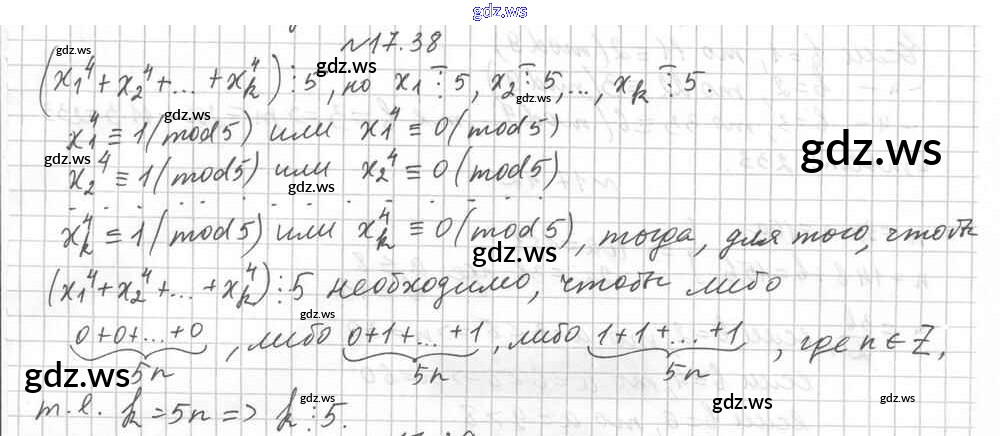 gdz.ws
№17.38
(x₁⁴ + x₂⁴ + ... + x_k⁴) ⋮ 5, но x₁ ⋮̅ 5, x₂ ⋮̅ 5, ..., x_k ⋮̅ 5.
x₁⁴ ≡ 1 (mod 5) или x₁⁴ ≡ 0 (mod 5)
x₂⁴ ≡ 1 (mod 5) или x₂⁴ ≡ 0 (mod 5)
. . . . . . . . . . . . . . .
x_k⁴ ≡ 1 (mod 5) или x_k⁴ ≡ 0 (mod 5), тогда, для того, чтобы
(x₁⁴ + x₂⁴ + ... + x_k⁴) ⋮ 5 необходимо, чтобы либо
0+0+...+0, либо 0+1+...+1, либо 1+1+...+1, где n ∈ Z,
5n 5n 5n
т.е. k = 5n => k ⋮ 5.
gdz.ws
gdz.ws
gdz.ws
gdz.ws
gdz.ws
gdz.ws
gdz.ws
gdz.ws
gdz.ws
gdz.ws
gdz.ws
gdz.ws
gdz.ws